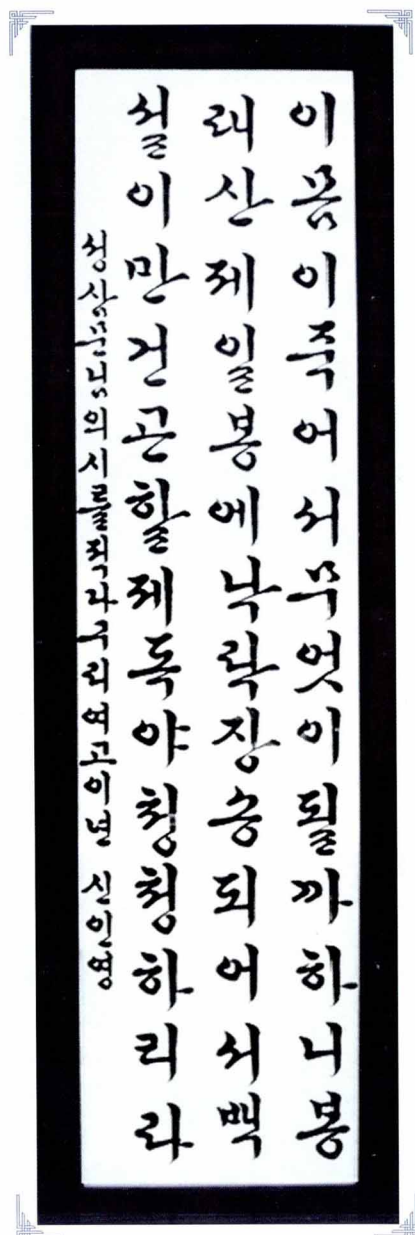 이몸이죽어서무엇이될까하니봉
래산제일봉에낙락장송되어서백
설이만건곤할제독야청청하리라
성삼문님의시를적다구리여고이년 신인영